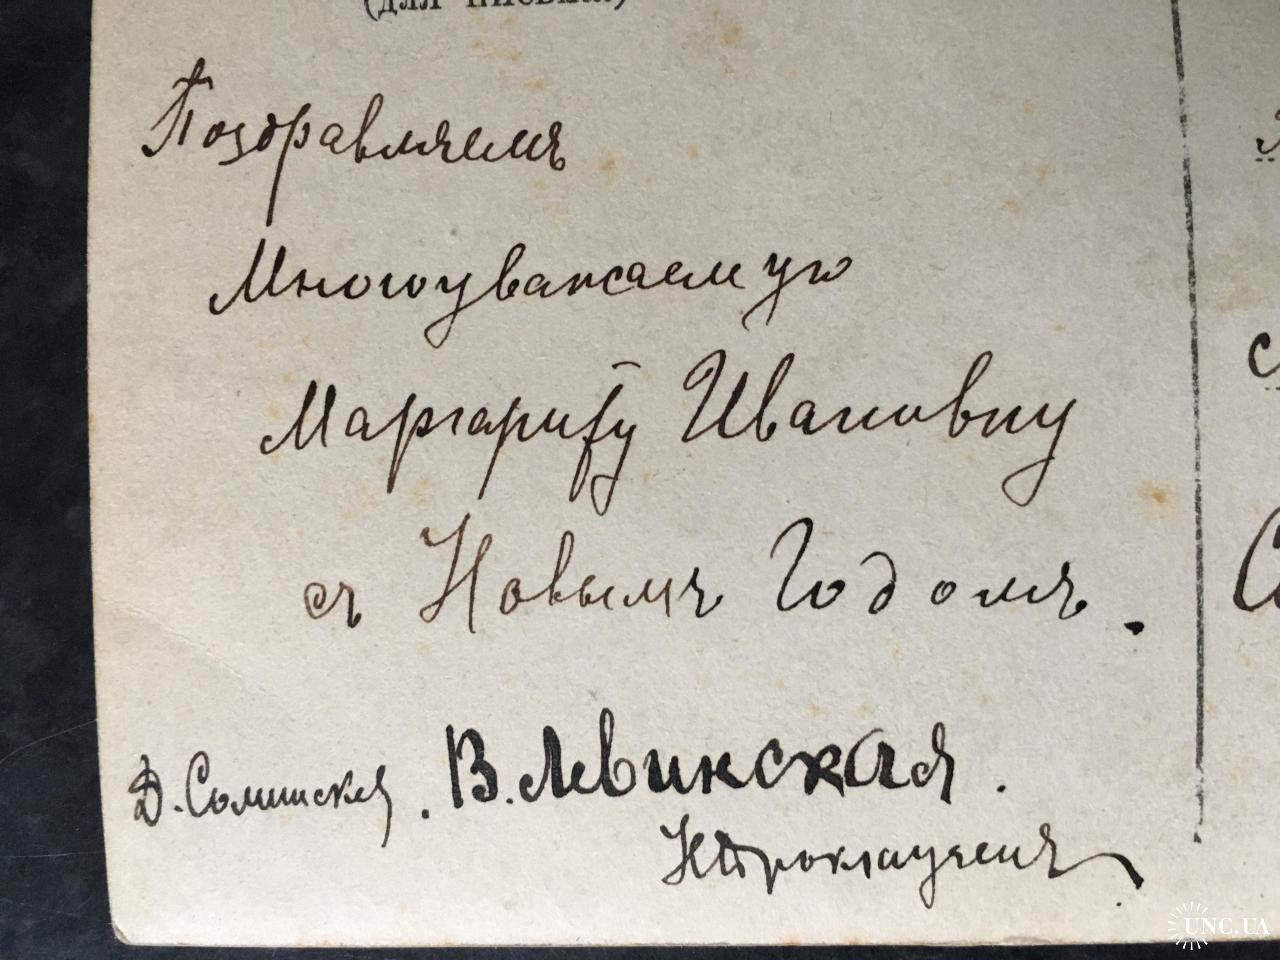 (для письма)
Поздравляемъ
Многоуважаемую
Маргариту Ивановну
съ Новымъ Годомъ.
Д. В. Левинская.
С
UNC.UA